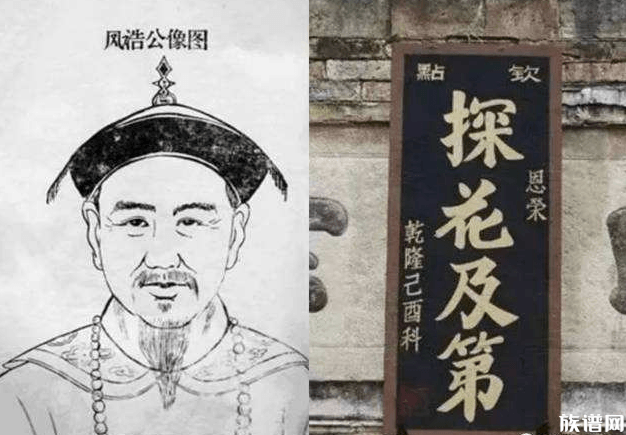 风浩公像图
钦點
恩榮
探花及第
乾隆己酉科
族谱网